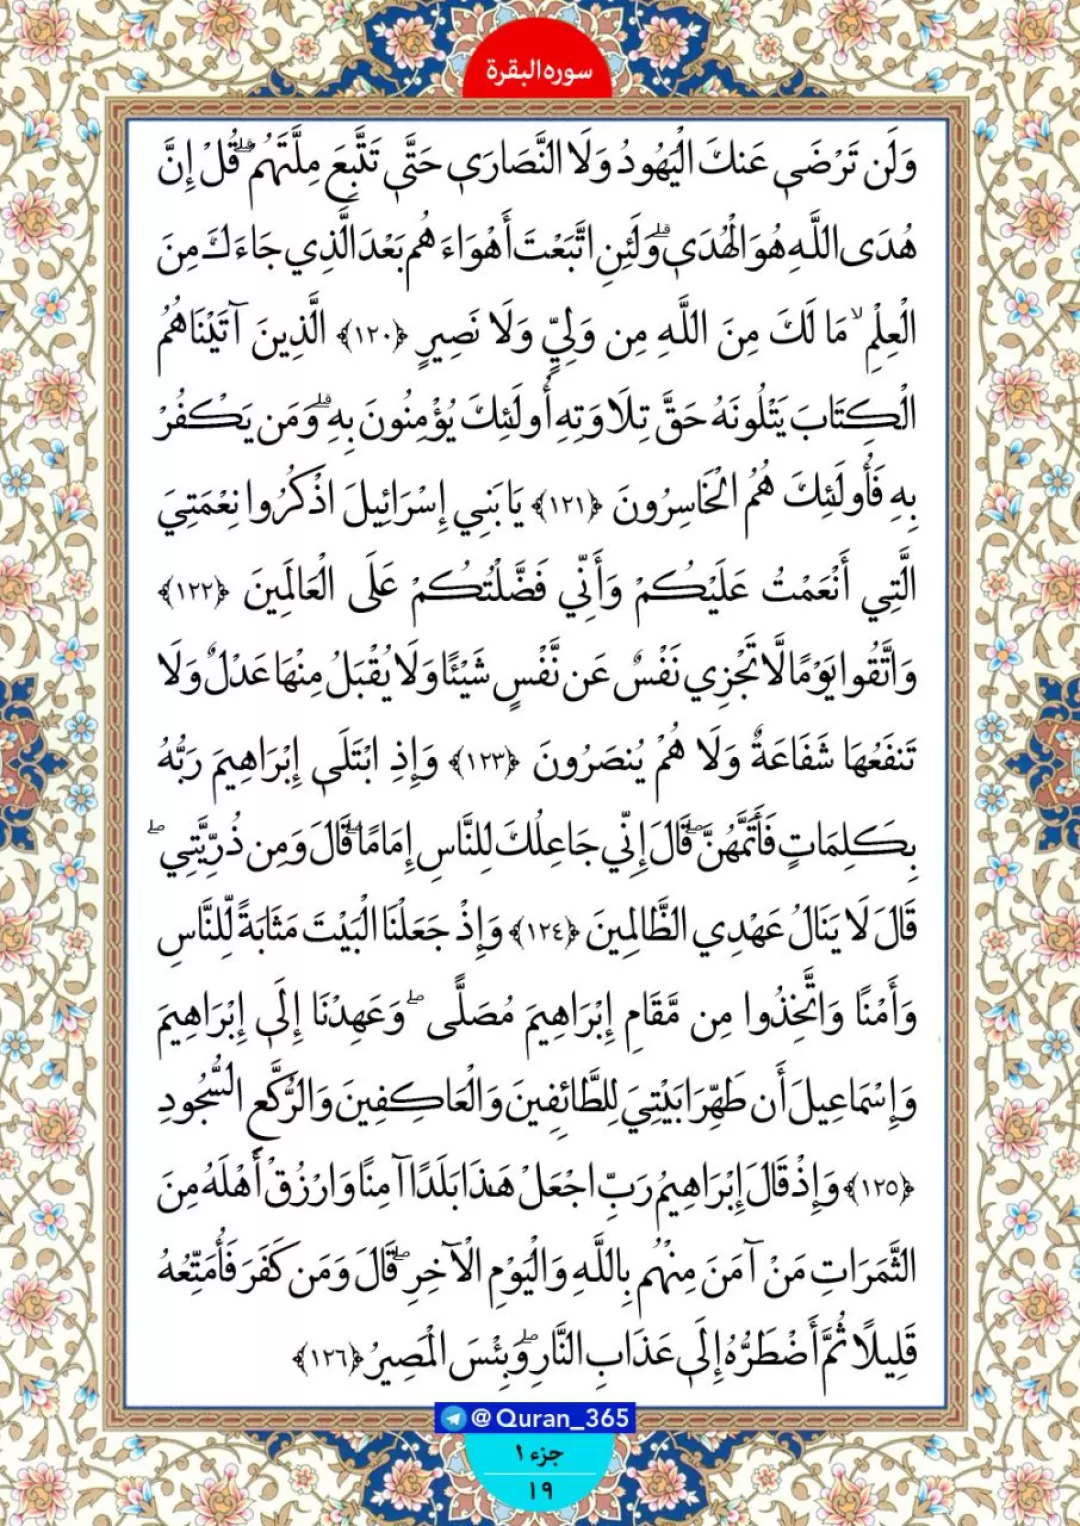 سوره البقرة
وَلَن تَرْضَىٰ عَنكَ الْيَهُودُ وَلَا النَّصَارَىٰ حَتَّىٰ تَتَّبِعَ مِلَّتَهُمْ ۗ قُلْ إِنَّ
هُدَى اللَّهِ هُوَ الْهُدَىٰ ۗ وَلَئِنِ اتَّبَعْتَ أَهْوَاءَهُم بَعْدَ الَّذِي جَاءَكَ مِنَ
الْعِلْمِ ۙ مَا لَكَ مِنَ اللَّهِ مِن وَلِيٍّ وَلَا نَصِيرٍ ﴿١٢٠﴾ الَّذِينَ آتَيْنَاهُمُ
الْكِتَابَ يَتْلُونَهُ حَقَّ تِلَاوَتِهِ أُولَئِكَ يُؤْمِنُونَ بِهِ ۗ وَمَن يَكْفُرْ
بِهِ فَأُولَئِكَ هُمُ الْخَاسِرُونَ ﴿١٢١﴾ يَا بَنِي إِسْرَائِيلَ اذْكُرُوا نِعْمَتِيَ
الَّتِي أَنْعَمْتُ عَلَيْكُمْ وَأَنِّي فَضَّلْتُكُمْ عَلَى الْعَالَمِينَ ﴿١٢٢﴾
وَاتَّقُوا يَوْمًا لَّا تَجْزِي نَفْسٌ عَن نَّفْسٍ شَيْئًا وَلَا يُقْبَلُ مِنْهَا عَدْلٌ وَلَا
تَنفَعُهَا شَفَاعَةٌ وَلَا هُمْ يُنصَرُونَ ﴿١٢٣﴾ وَإِذِ ابْتَلَىٰ إِبْرَاهِيمَ رَبُّهُ
بِكَلِمَاتٍ فَأَتَمَّهُنَّ ۖ قَالَ إِنِّي جَاعِلُكَ لِلنَّاسِ إِمَامًا ۖ قَالَ وَمِن ذُرِّيَّتِي ۖ
قَالَ لَا يَنَالُ عَهْدِي الظَّالِمِينَ ﴿١٢٤﴾ وَإِذْ جَعَلْنَا الْبَيْتَ مَثَابَةً لِّلنَّاسِ
وَأَمْنًا وَاتَّخِذُوا مِن مَّقَامِ إِبْرَاهِيمَ مُصَلًّى ۖ وَعَهِدْنَا إِلَىٰ إِبْرَاهِيمَ
وَإِسْمَاعِيلَ أَن طَهِّرَا بَيْتِيَ لِلطَّائِفِينَ وَالْعَاكِفِينَ وَالرُّكَّعِ السُّجُودِ
﴿١٢٥﴾ وَإِذْ قَالَ إِبْرَاهِيمُ رَبِّ اجْعَلْ هَٰذَا بَلَدًا آمِنًا وَارْزُقْ أَهْلَهُ مِنَ
الثَّمَرَاتِ مَنْ آمَنَ مِنْهُم بِاللَّهِ وَالْيَوْمِ الْآخِرِ ۖ قَالَ وَمَن كَفَرَ فَأُمَتِّعُهُ
قَلِيلًا ثُمَّ أَضْطَرُّهُ إِلَىٰ عَذَابِ النَّارِ ۖ وَبِئْسَ الْمَصِيرُ ﴿١٢٦﴾
@Quran_365
جزء ١
١٩